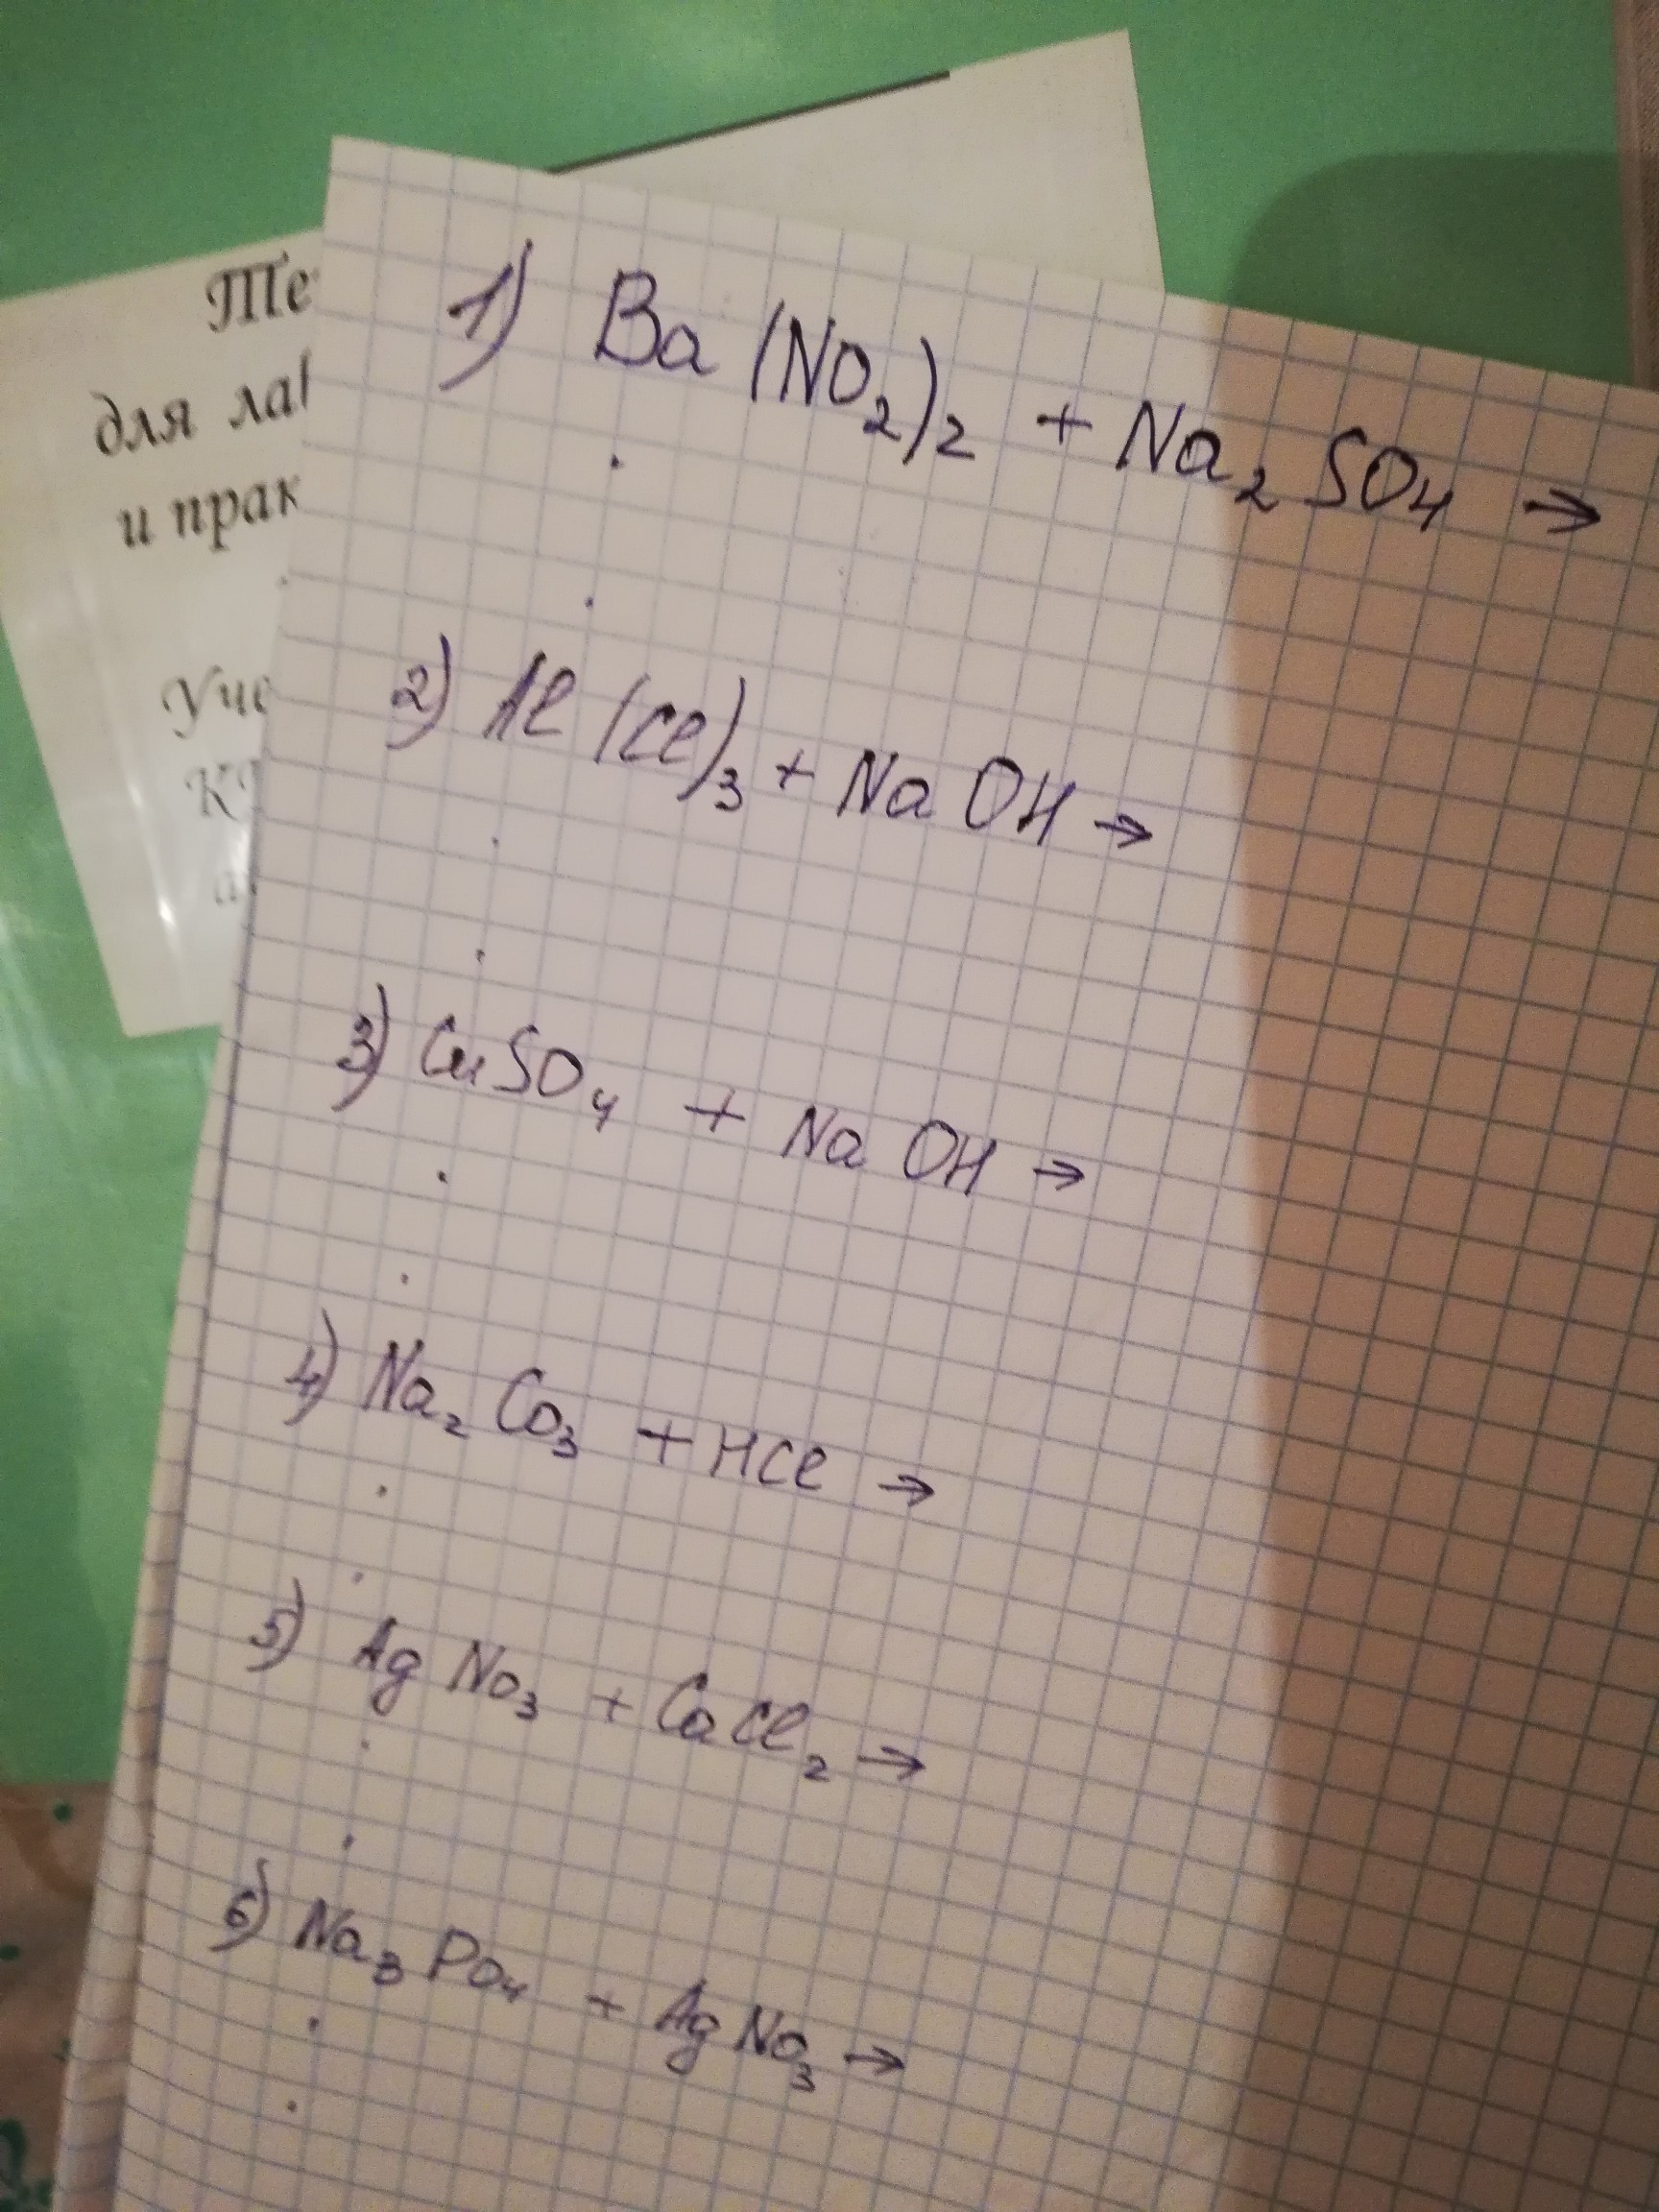 Те
для лаб
и прак
Уче
1) Ba(NO₂)₂ + Na₂SO₄ →
2) Al(Cl)₃ + NaOH →
3) CuSO₄ + NaOH →
4) Na₂Co₃ + HCl →
5) AgNo₃ + CaCl₂ →
6) Na₃Po₄ + AgNo₃ →